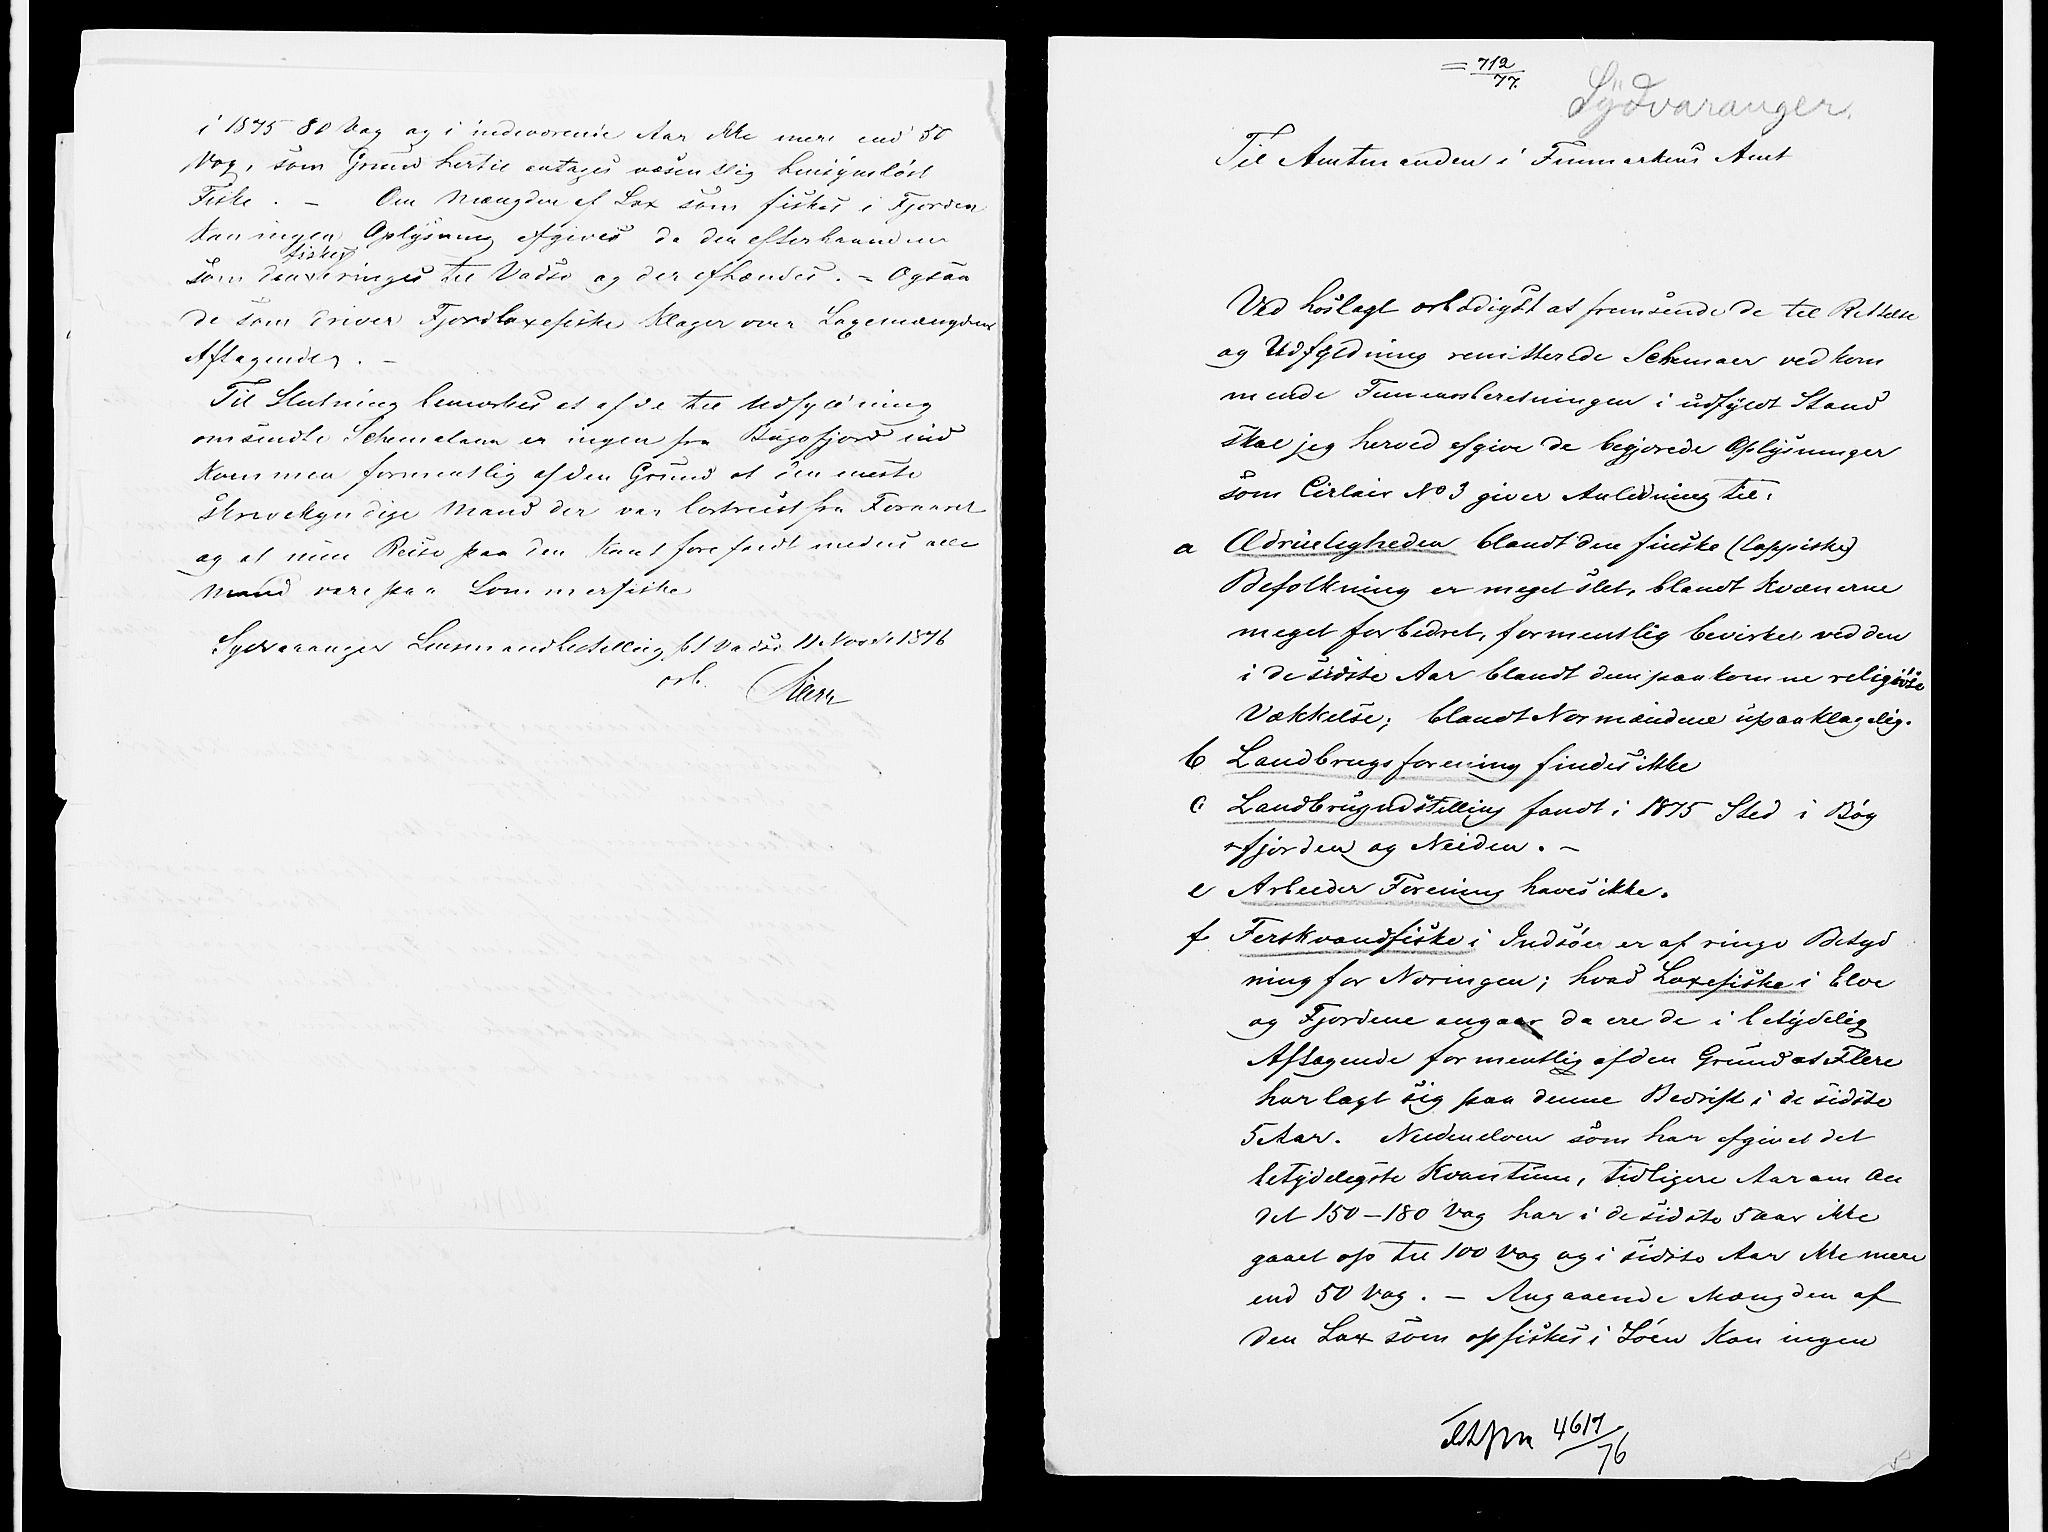 i 1875 80 Vog og i indeværende Aar ikke mere end 50
Vog, som Grund hertil antages væsentlig hensynsløst
Fiske. – Om Mængden af Lax som fiskes i Fjorden
kan ingen Oplysning afgives da den efterhaanden
fiskes
som den bringes til Vadsø og der afhændes. – Ogsaa
de som driver Fjordlaxefiske klager over Laxemængdens
Aftagende. –
Til Slutning bemærkes at af de til Udfyldning
omsendte Schemataer er ingen fra Bugøfjord ind
kommen formentlig af den Grund at den meste
skrivekyndige Mand der var bortreist fra Foraaret
og at min Reise paa den Kant forefandt medens alle
Mand vare paa Sommerfiske
Sydvaranger Lensmandbestilling pt Vadsø 11 Novbr 1876
ærb.
= 712/77.
Sydvaranger.
Til Amtmanden i Finmarkens Amt
Ved hoslagt ærbødigst at fremsende de til Rettelse
og Udfyldning remitterede Schemaer vedkom
mende Femaarsberetningen i udfyldt Stand
skal jeg herved afgive de begjærede Oplysninger
som Cirlair No 3 giver Anledning til:
a Ædrueligheden blandt den finske (lappiske)
Befolkning er meget slet, blandt Kvænerne
meget forbedret, formentlig bevirket ved den
i de sidste Aar blandt dem paakomne religiøse
Vækkelse; blandt Normændene upaaklagelig.
b Landbrugsforening findes ikke
c Landbrugudstelling fandt i 1875 Sted i Bøg
fjorden og Neiden. –
e Arbeider Forening haves ikke.
f Ferskvandfiske i Indsøer er af ringe Betyd
ning for Næringen; hvad Laxefiske i Elve
og Fjordene angaar da ere de i betydelig
Aftagende formentlig af den Grund at Flere
har lagt sig paa denne Bedrift i de sidste
5 Aar. Neidenelven som har afgivet det
betydeligste Kvantum, tidligere Aar om An
det 150–180 Vog har i de sidste 5 aar ikke
gaaet op til 100 Vog og i sidste Aar ikke mere
end 50 Vog. – Angaaende Mængden af
den Lax som opfiskes i Søen kan ingen
4617/76